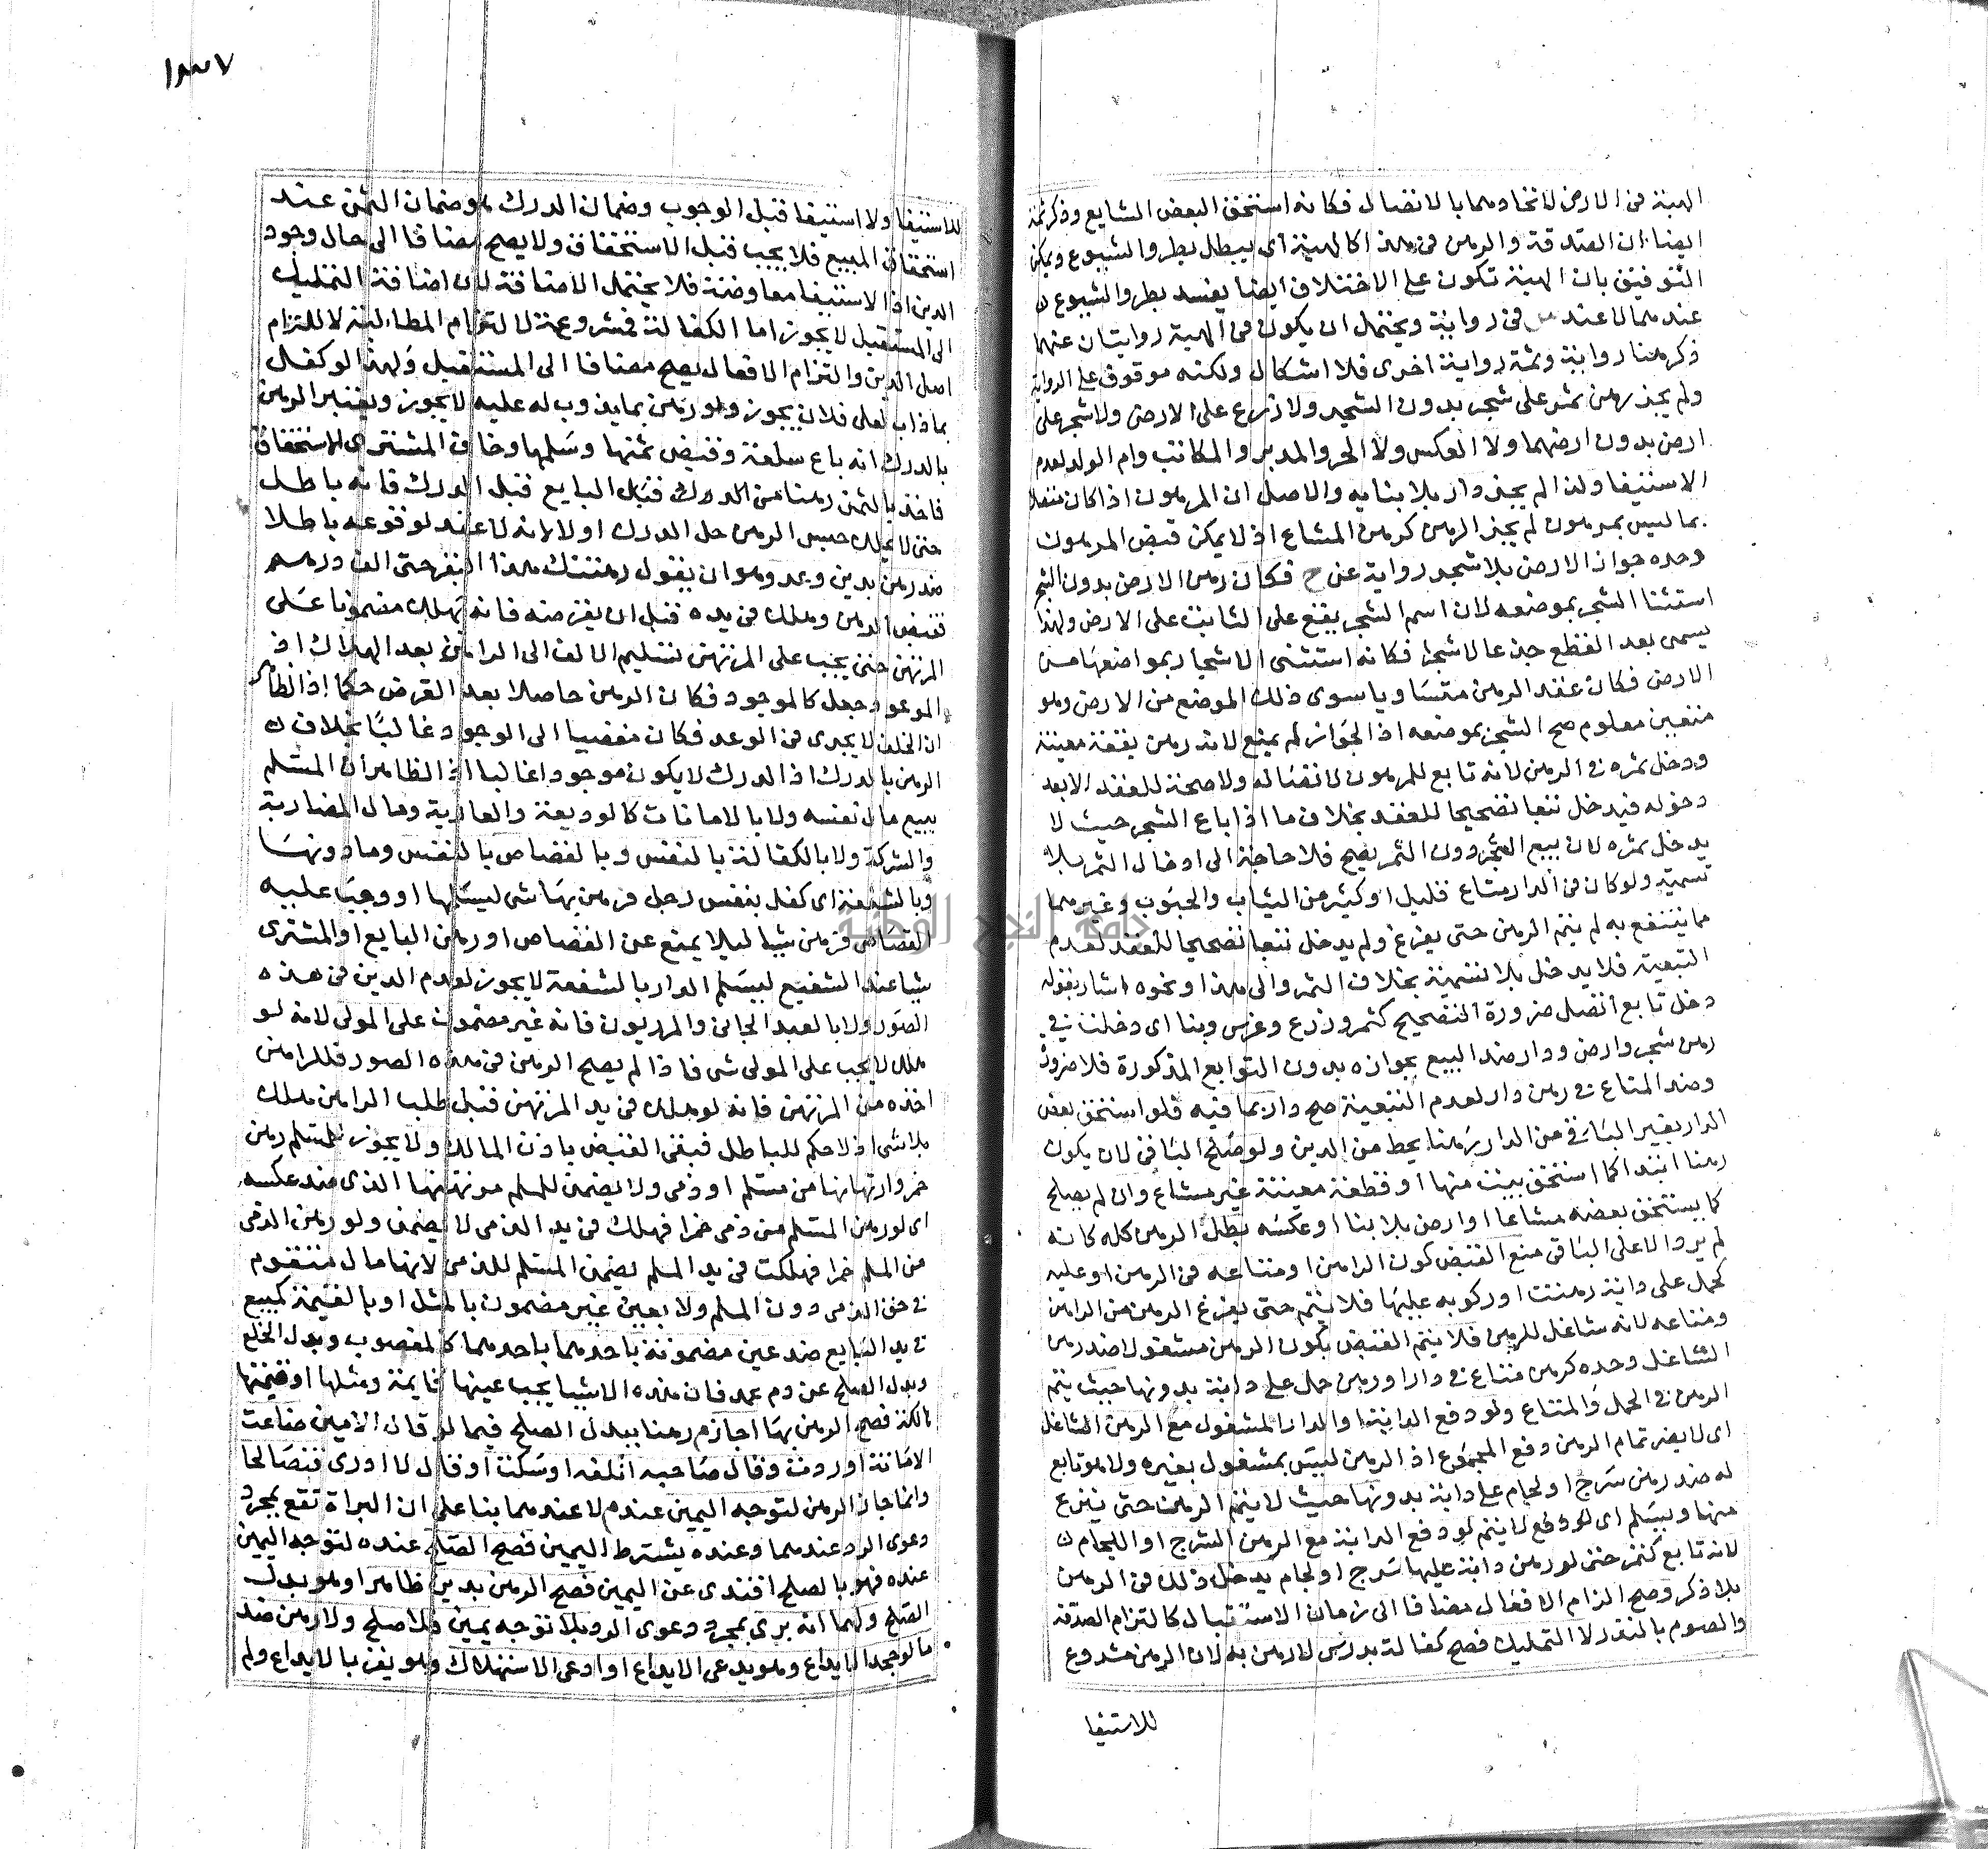 الهبة في الارض لاتحادهما بالاتصال فكانه استحق البعض الشايع وذكر ثمة
ايضا ان الصدقة والرهن في هذا كالهبة اى يبطل بطرو الشيوع ويمكن
التوفيق بان الهبة تكون على الاختلاف ايضا يفسد بطرو الشيوع
عندهما لا عند في رواية ويحتمل ان يكون في الهبة روايتان عنهما
ذكر هنا رواية وثمة رواية اخرى فلا اشكال ولكنه موقوف على الرواية
ولم يجز رهن ثمر على شجر بدون الشجر ولا زرع على الارض ولا شجر على
ارض بدون ارضهما ولا العكس ولا الحر والمدبر والمكاتب وام الولد لعدم
الاستيفا ولذا لم يجز دار بلا بنايه والاصل ان المرهون اذا كان متصلا
بما ليس بمرهون لم يجز الرهن كرهن المشاع اذ لا يمكن قبض المرهون
وحده جواز الارض بلا شجر رواية عن ح فكان رهن الارض بدون الشجر
استثنا الشجر بموضعه لان اسم الشجر يقع على الثابت على الارض ولهذا
يسمى بعد القطع جذعا لا شجرا فكانه استثنى الاشجار بمواضعها من
الارض فكان عقد الرهن متساويا سوى ذلك الموضع من الارض وهو
متعين معلوم صح الشجر بموضعه اذ الجواز لم يمنع لانه رهن بقعة معينة
ودخل ثمره في الرهن لانه تابع للمرهون لاتصاله ولا صحة للعقد الا بعد
دخوله فيدخل تبعا تصحيحا للعقد بخلاف ما اذا باع الشجر حيث لا
يدخل ثمره لان بيع الشجر دون الثمر يصح فلا حاجة الى ادخال الثمر بلا
تسمية ولو كان في الدار متاع قليل او كثير من الثياب والحبوب وغيرهما
مما ينتفع به لم يتم الرهن حتى يفرغ ولم يدخل تبعا تصحيحا للعقد لعدم
التبعية فلا يدخل بلا تسمية بخلاف الثمر والى هذا ونحوه اشار بقوله
دخل تابع اتصل ضرورة التصحيح كثمر وزرع وغرس وبنا اى دخلت في
رهن شجر وارض ودار ضد البيع بجوازه بدون التوابع المذكورة فلا ضرورة
وضد المتاع في رهن دار لعدم التبعية صح دار بما فيه فلو استحق بعض
الدار بقي الباقي من الدار رهنا بحط من الدين ولو صلح الباقي لان يكون
رهنا ابتدا كما استحق بيت منها او قطعة معينة غير مشاع وان لم يصلح
كما يستحق بعضه مشاعا او ارض بلا بنا او عكسه بطل الرهن كله كانه
لم يرد الا على الباقي منع القبض كون الراهن او متاعه في الرهن او عليه
كحمل على دابة رهنت او ركوبه عليها فلا يتم حتى يفرغ الرهن من الراهن
ومتاعه لانه شاغل للرهن فلا يتم القبض بكون الرهن مشغولا ضد رهن
الشاغل وحده كرهن متاع في دار او رهن حمل على دابة بدونها حيث يتم
الرهن في الحمل والمتاع ولو دفع الدابة والدار المشغول مع الرهن الشاغل
اى لا يضر تمام الرهن دفع المجموع اذ الرهن ليس بمشغول بغيره ولا هو تابع
له ضد رهن سرج او لجام على دابة بدونها حيث لا يتم الرهن حتى ينزع
منها ويسلم اى لو دفع لا يتم لو دفع الدابة مع الرهن السرج او اللجام
لانه تابع كثمر حتى لو رهن دابة عليها سرج او لجام يدخل ذلك في الرهن
بلا ذكر وصح الزام الافعال مضافا الى زمان الاستقبال كالتزام الصدقة
والصوم بالنذر لا التمليك فصح كفالة بدرك لا رهن به لان الرهن مشروع
للاستيفا
للاستيفا ولا استيفا قبل الوجوب وضمان الدرك هو ضمان الثمن عند
استحقاق المبيع فلا يجب قبل الاستحقاق ولا يصح مضافا الى حال وجود
الدين اذ الاستيفا معاوضة فلا يحتمل الاضافة لان اضافة التمليك
الى المستقبل لا يجوز اما الكفالة فمشروعة لالتزام المطالبة لا لالتزام
اصل الدين والتزام الافعال يصح مضافا الى المستقبل ولهذا لو كفل
بما ذاب لعلى فلان يجوز ولو رهن بما يذوب له عليه لا يجوز وتفسير الرهن
بالدرك انه باع سلعة وقبض ثمنها وسلمها وخاف المشترى الاستحقاق
فاخذ بالثمن رهنا من الدرك قبل البايع قبل الدرك فانه باطل
حتى لا يملك حبس الرهن حل الدرك اولا لانه لا عقد لوقوعه باطلا
ضد رهن بدين وعد وهو ان يقول رهنتك هذا لتقرضني الف درهم
فقبض الرهن وهلك في يده قبل ان يقرضه فانه يهلك مضمونا على
المرتهن حتى يجب على المرتهن تسليم الالف الى الراهن بعد الهلاك اذ
الموعود جعل كالموجود فكان الرهن حاصلا بعد القرض حكما اذ الظاهر
ان الخلف لا يجرى في الوعد فكان مفضيا الى الوجود غالبا بخلاف
الرهن بالدرك اذ الدرك لا يكون موجودا غالبا اذ الظاهر ان المسلم
يبيع مال نفسه ولا بالامانات كالوديعة والعارية ومال المضاربة
والشركة ولا بالكفالة بالنفس وبالقصاص بالنفس وما دونها
وبالشفعة اى كفل بنفس رجل فرهن بها شى ليسلمها او وجب عليه
القصاص فرهن شيا ليلا يمنع عن القصاص او رهن البايع او المشترى
شيا عند الشفيع ليسلم الدار بالشفعة لا يجوز لعدم الدين في هذه
الصور ولا بالعبد الجاني والمديون فانه غير مضمون على المولى لانه لو
هلك لا يجب على المولى شى فاذا لم يصح الرهن في هذه الصور فللراهن
اخذه من المرتهن فانه لو هلك في يد المرتهن قبل طلب الراهن هلك
بلا شى اذ لا حكم للباطل فبقى القبض باذن المالك ولا يجوز للمسلم رهن
خمر وارتهانها من مسلم او ذمى ولا يضمن للمسلم مرتهنها الذمى ضد عكسه
اى لو رهن المسلم من ذمى خمرا فهلك في يد الذمى لا يضمن ولو رهن الذمى
من المسلم خمرا فهلكت في يد المسلم يضمن المسلم للذمى لانها مال متقوم
في حق الذمى دون المسلم ولا بعين غير مضمون بالمثل او بالقيمة كمبيع
في يد البايع ضد عين مضمونة باحدهما كالمغصوب وبدل الخلع
وبدل الصلح عن دم عمد فان هذه الاشيا يجب عينها قايمة ومثلها او قيمتها
هالكة فصح الرهن بها اجازم رهنا ببدل الصلح فيما لو قال الامين ضاعت
الامانة او ردت وقال صاحبه اتلفه او سكت او قال لا ادرى فتصالحا
وانما جاز الرهن لتوجه اليمين عندم لا عندهما بنا على ان البراة تقع بمجرد
دعوى الرد عندهما وعنده يشترط اليمين فصح الصلح عنده لتوجه اليمين
عنده فهو بالصلح افتدى عن اليمين فصح الرهن بدين ظاهرا وهو بدل
الصلح ولهما انه برى بمجرد دعوى الرد بلا توجه يمين فلا صلح ولا رهن ضد
ما لو جحد الايداع وهو يدعى الايداع او ادعى الاستهلاك وهو يقر بالايداع ولم
جامعة النجاح الوطنية